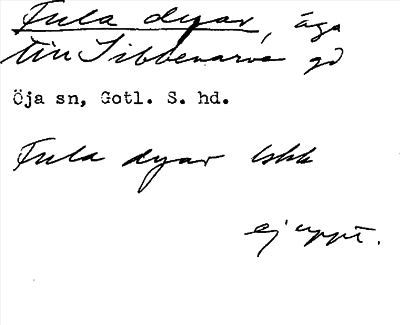 Fula dyar, äga
till Sibbenarve gd
Öja sn, Gotl. S. hd.
Fula dyar lskk
ej uppt.